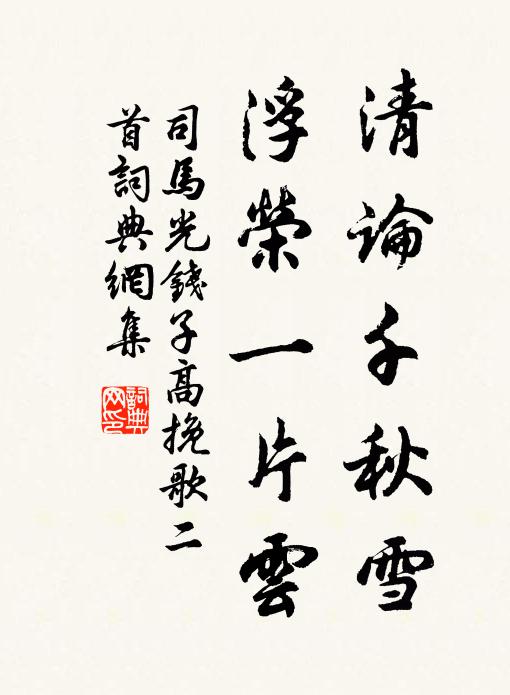 清論千秋雪
浮榮一片雲
司馬光錢子高挽歌二
首詞典網集
詞典网印